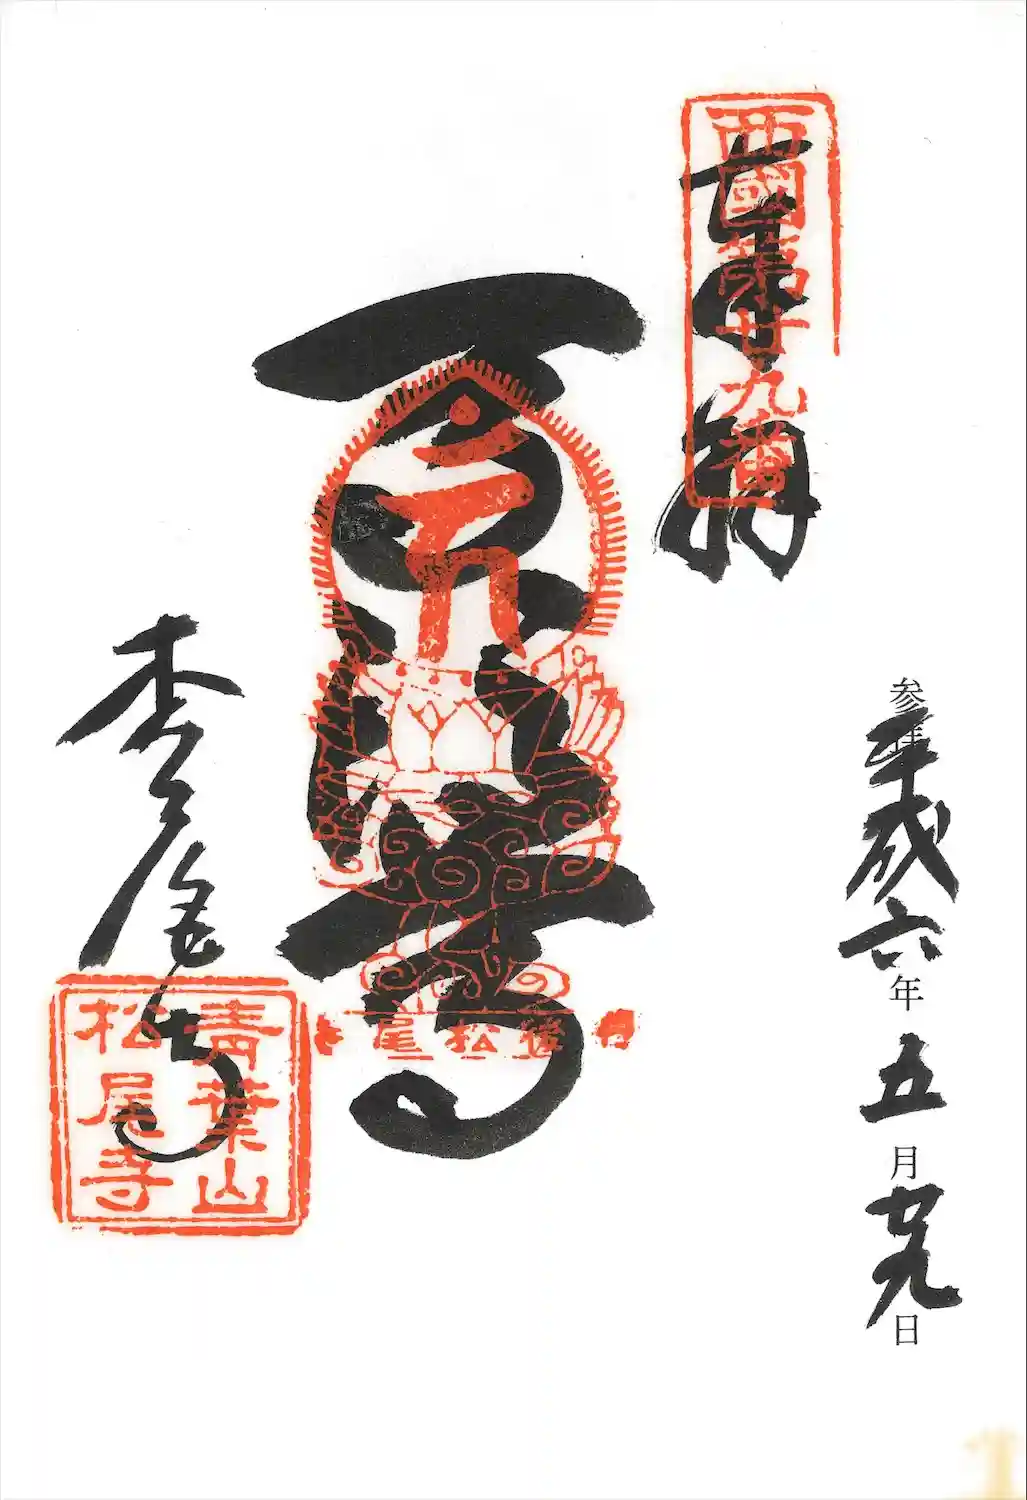 参拝平成六年五月廿九日
西國第廿九番
丹後松尾寺
松尾寺
青葉山
松尾寺